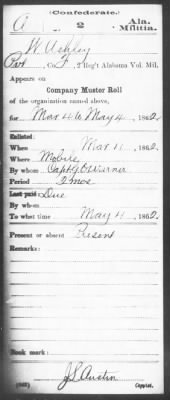 (Confederate.)
A 2 Ala. Militia.
W Ashley
Pvt, Co. F, 2 Reg't Alabama Vol. Mil.
Appears on
Company Muster Roll
of the organization named above,
for Mar 4 to May 4, 1862.
Enlisted:
When Mar 11, 1862.
Where Mobile
By whom Capt G O Warner
Period 2 mos
Last paid: Due
By whom
To what time May 4, 1862.
Present or absent Present
Remarks:
Book mark:
J S Austin
(642) Copyist.